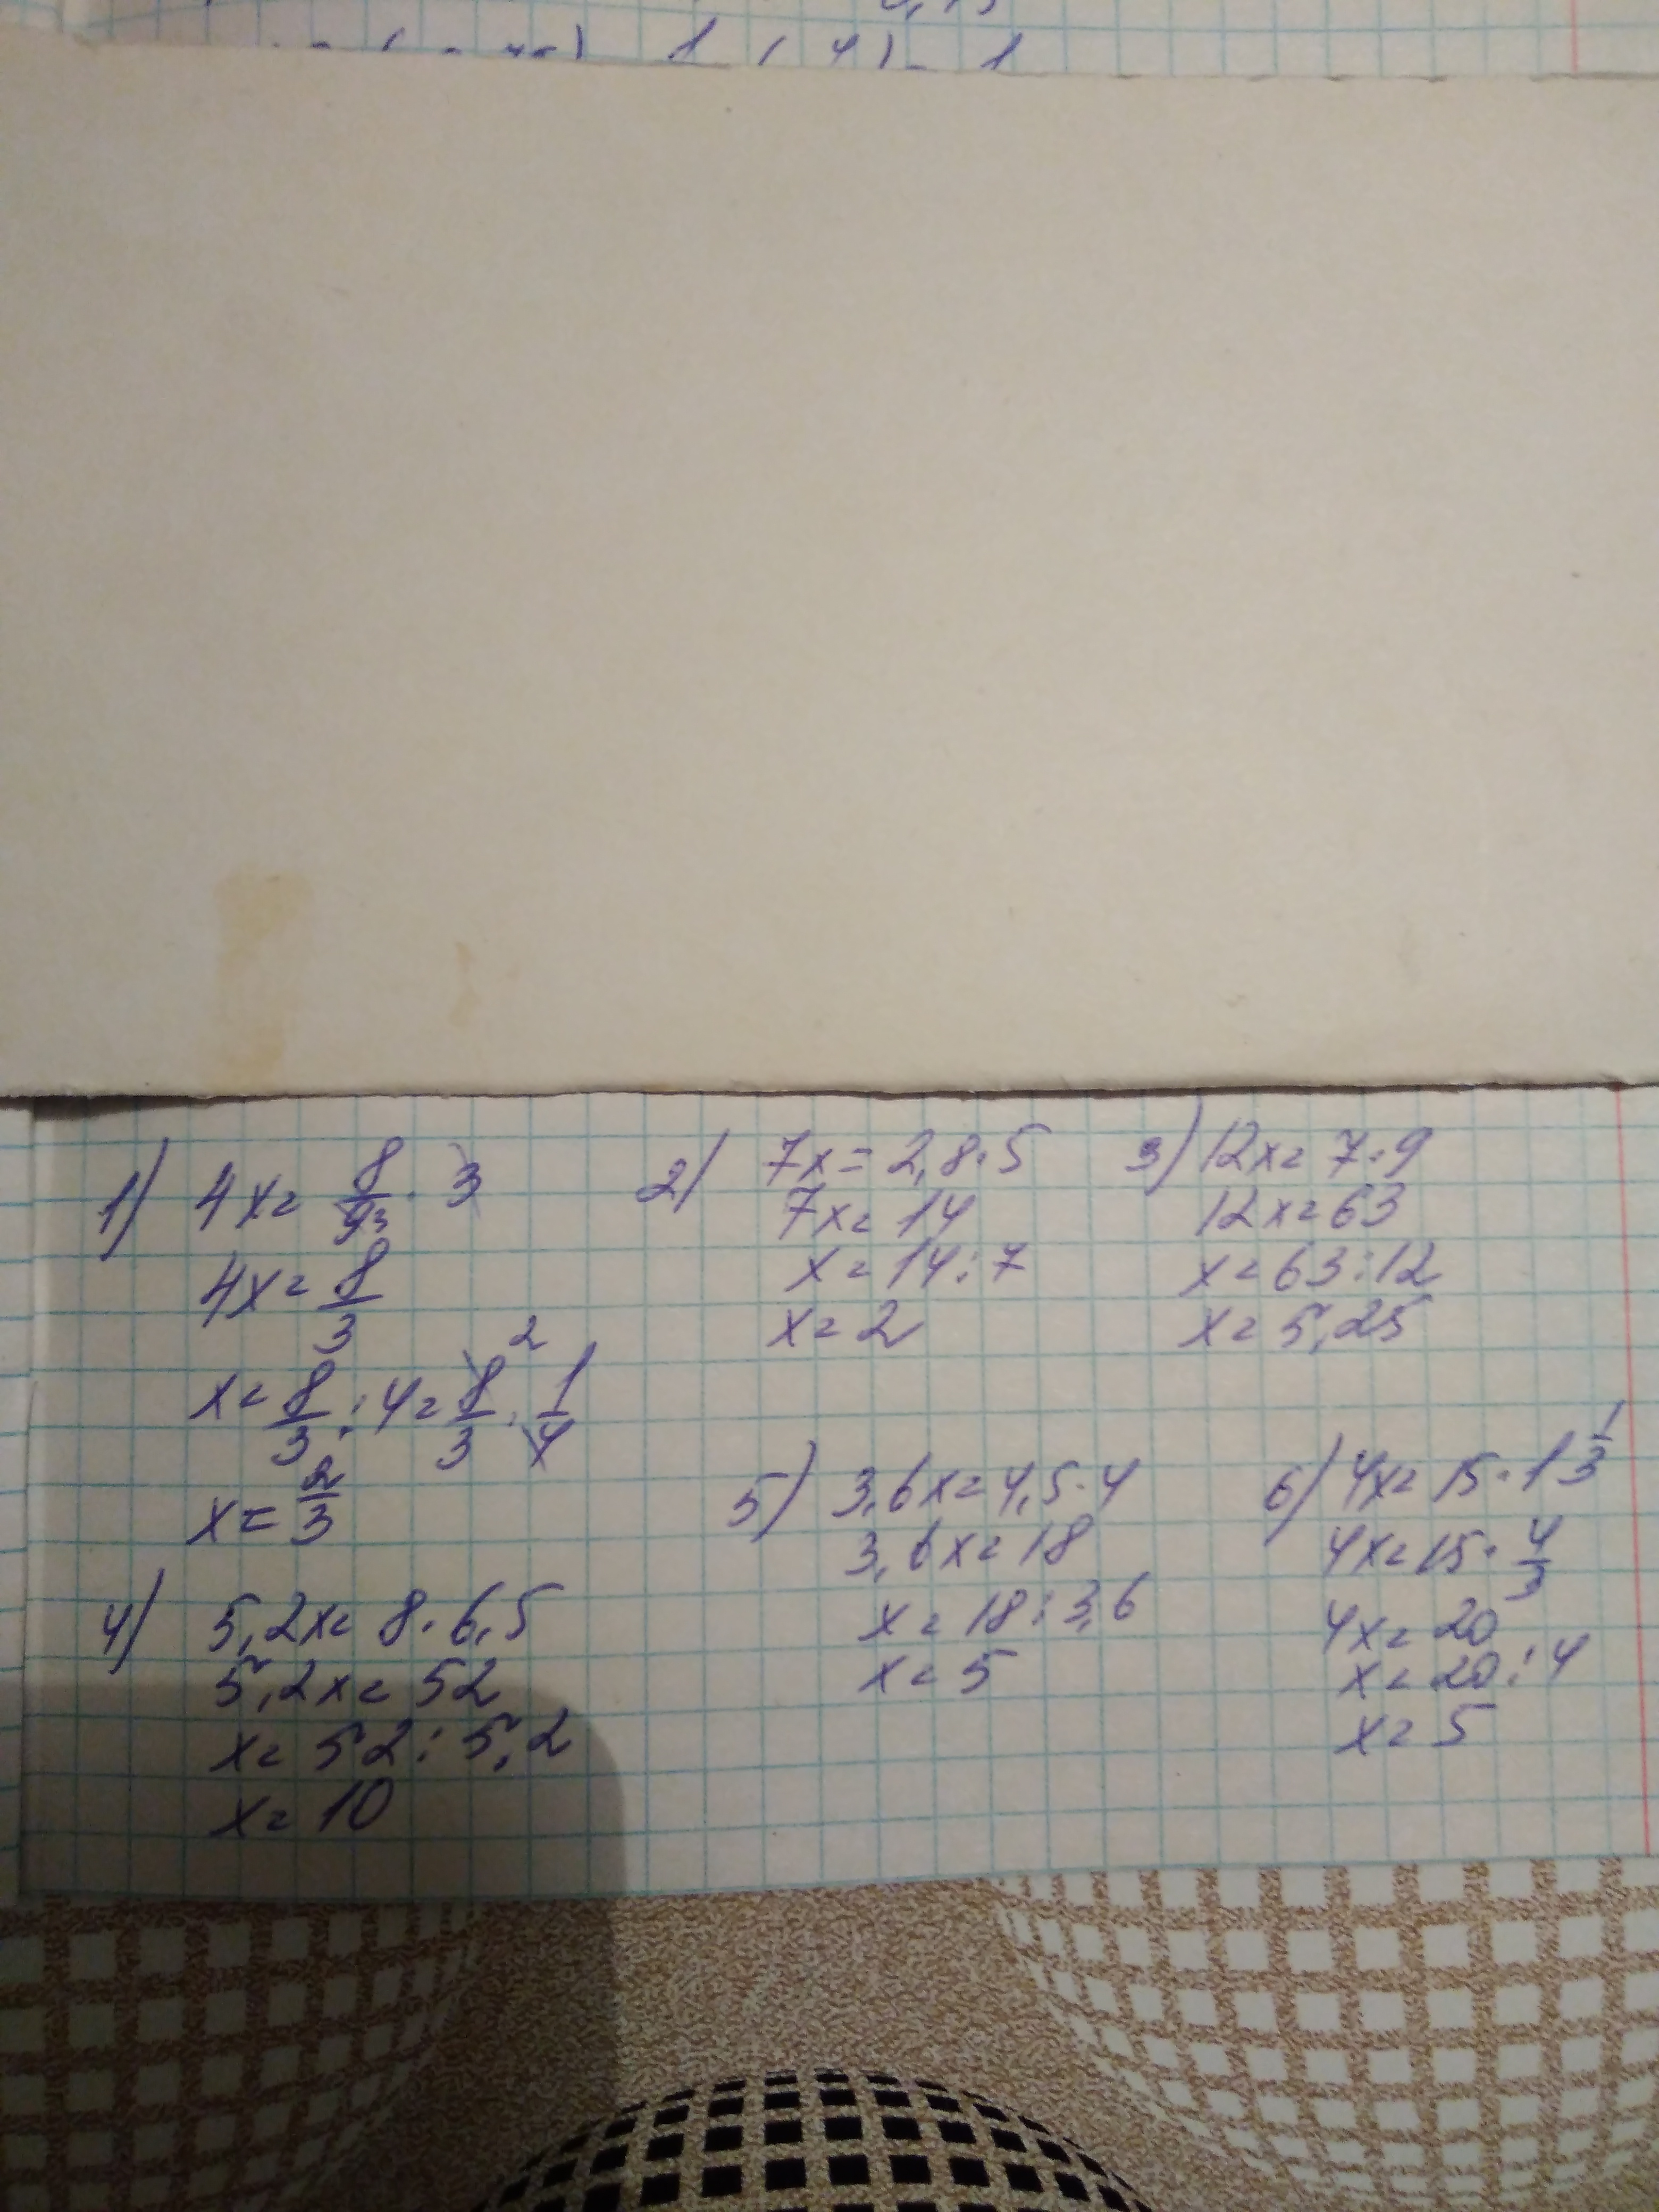 1) 4x = 8/9 3 · 3
4x = 8/3
x = 8/3 : 4 = 8/3 2 · 1/4
x = 2/3
2) 7x = 2,8 · 5
7x = 14
x = 14 : 7
x = 2
3) 12x = 7 · 9
12x = 63
x = 63 : 12
x = 5,25
4) 5,2x = 8 · 6,5
5,2x = 52
x = 52 : 5,2
x = 10
5) 3,6x = 4,5 · 4
3,6x = 18
x = 18 : 3,6
x = 5
6) 4x = 15 · 1 1/3
4x = 15 · 4/3
4x = 20
x = 20 : 4
x = 5